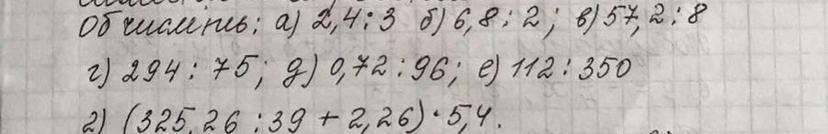 Обчисліть: а) 2,4:3 б) 6,8:2; в) 57,2:8
г) 294:75; д) 0,72:96; е) 112:350
2) (325,26:39+2,26)·5,4.